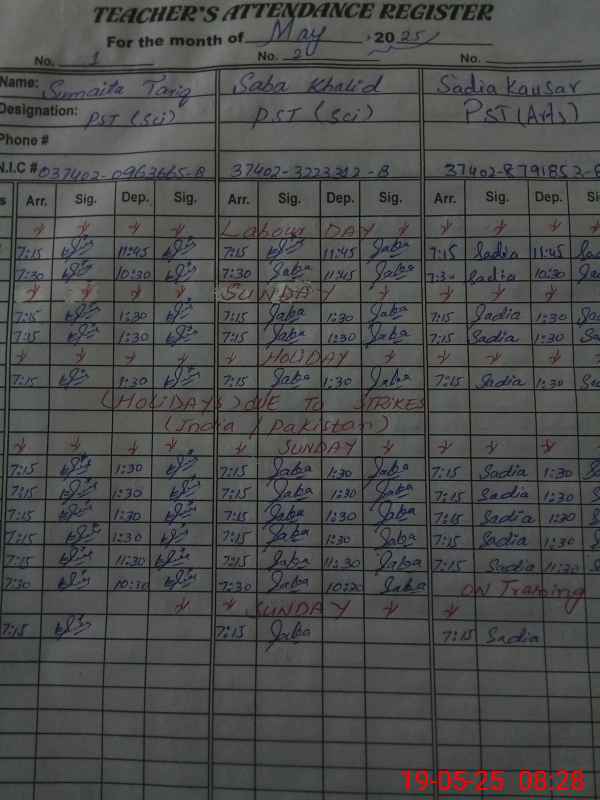 TEACHER'S ATTENDANCE REGISTER
For the month of May 2025
No. 1 No. 2 No.
Name: Sumaita Tariq Saba Khalid Sadia Kausar
Designation: PST (Sci) PST (Sci) PST (Arts)
Phone #
N.I.C # 037402-0963665-8 37402-3223312-8 37402-8791852-8
Arr. Sig. Dep. Sig. Arr. Sig. Dep. Sig. Arr. Sig. Dep.
Labour DAY
7:15 11:45 7:15 11:45 Saba 7:15 Sadia 11:45
7:30 10:30 7:30 Saba 11:45 Saba 7:30 Sadia 10:30
SUNDAY
7:15 1:30 7:15 Saba 1:30 Saba 7:15 Sadia 1:30
7:15 1:30 7:15 Saba 1:30 Saba 7:15 Sadia 1:30
HOLIDAY
7:15 1:30 7:15 Saba 1:30 Saba 7:15 Sadia 1:30
(HOLIDAYS) DUE To STRIKES
(India / Pakistan)
SUNDAY
7:15 1:30 7:15 Saba 1:30 Saba 7:15 Sadia 1:30
7:15 1:30 7:15 Saba 1:30 Saba 7:15 Sadia 1:30
7:15 1:30 7:15 Saba 1:30 Saba 7:15 Sadia 1:30
7:15 1:30 7:15 Saba 1:30 Saba 7:15 Sadia 1:30
7:15 11:30 7:15 Saba 11:30 Saba 7:15 Sadia 11:30
7:30 10:30 7:30 Saba 10:20 Saba ON Training
SUNDAY
7:15 7:15 Saba 7:15 Sadia
19-05-25 08:28